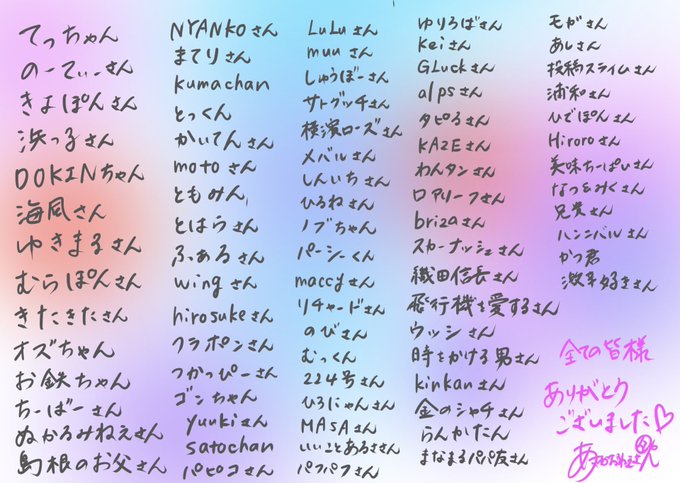 てっちゃん
のーてぃーさん
きよぽんさん
浜っ子さん
DOKINちゃん
海風さん
ゆきまるさん
むらぽんさん
きたきたさん
オズちゃん
お鉄ちゃん
ちーばーさん
ぬかるみねえさん
島根のお父さん
NYANKOさん
まてりさん
kumachan
とっくん
かいてんさん
motoさん
ともみん
とはらさん
ふぁるさん
wingさん
hirosukeさん
クラポンさん
つかっぴーさん
ゴンちゃん
yuukiさん
satochan
パピコさん
LuLuさん
muuさん
しゅうぼーさん
サトグッチさん
横濱ローズさん
メバルさん
しんいちさん
ひろねさん
ノブちゃん
パーシーくん
maccyさん
リチャードさん
のびさん
むっくん
224号さん
ひろにゃんさん
MASAさん
いいことあるささん
パフパフさん
ゆりろばさん
Keiさん
GLuckさん
alpsさん
タピろさん
KAZEさん
わんタンさん
ロアリーフさん
brizaさん
スカーナッシュさん
織田信長さん
飛行機を愛するさん
ウッシさん
時をかける男さん
kinkanさん
金のシャチさん
らんかたん
まなまるパパ友さん
モがさん
あしさん
投稿スライムさん
浦和さん
ひでぽんさん
Hiroroさん
美味ちーぱいさん
なつをみくさん
兄貴さん
ハンニバルさん
かつ君
激辛好きさん
全ての皆様
ありがとう
ございました♡